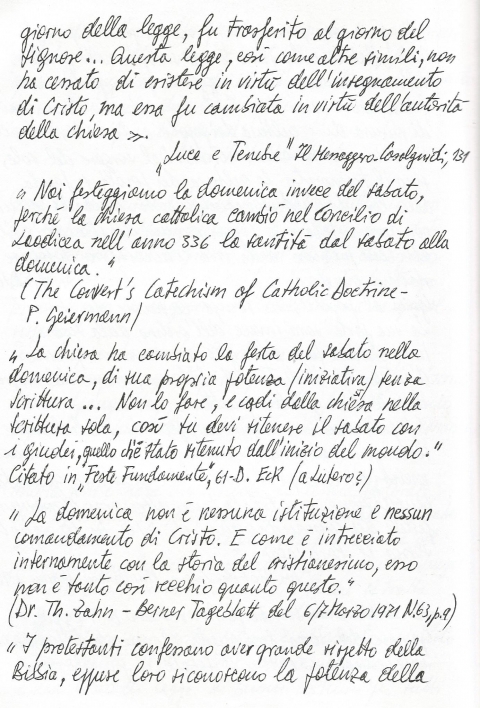 giorno della legge, fu trasferito al giorno del
Signore... Questa legge, così come altre simili, non
ha cessato di esistere in virtù dell'insegnamento
di Cristo, ma essa fu cambiata in virtù dell'autorità
della chiesa ».
„Luce e Tenebre" Il Messaggero-Casalguidi, 131
„ Noi festeggiamo la domenica invece del sabato,
perché la chiesa cattolica cambiò nel Concilio di
Laodicea nell'anno 336 la santità dal sabato alla
domenica."
(The Convert's Catechism of Catholic Doctrine-
P. Geiermann)
„ La chiesa ha cambiato la festa del sabato nella
domenica, di sua propria potenza (iniziativa) senza
Scrittura... Non lo fare, e cadi dalla chiesa nella
scrittura sola, così tu devi ritenere il sabato con
i giudei, quello ch'è stato ritenuto dall'inizio del mondo."
Citato in „Feste Fundamente", 61-D. Eck (a Lutero?)
„ La domenica non è nessuna istituzione e nessun
comandamento di Cristo. E come è intrecciato
internamente con la storia del cristianesimo, esso
non è tanto così vecchio quanto questo."
(Dr. Th. Zahn - Berner Tageblatt del 6/7 Marzo 1971 N.63, p.9)
„ I protestanti confessano aver grande rispetto della
Bibbia, eppure loro riconoscono la potenza della